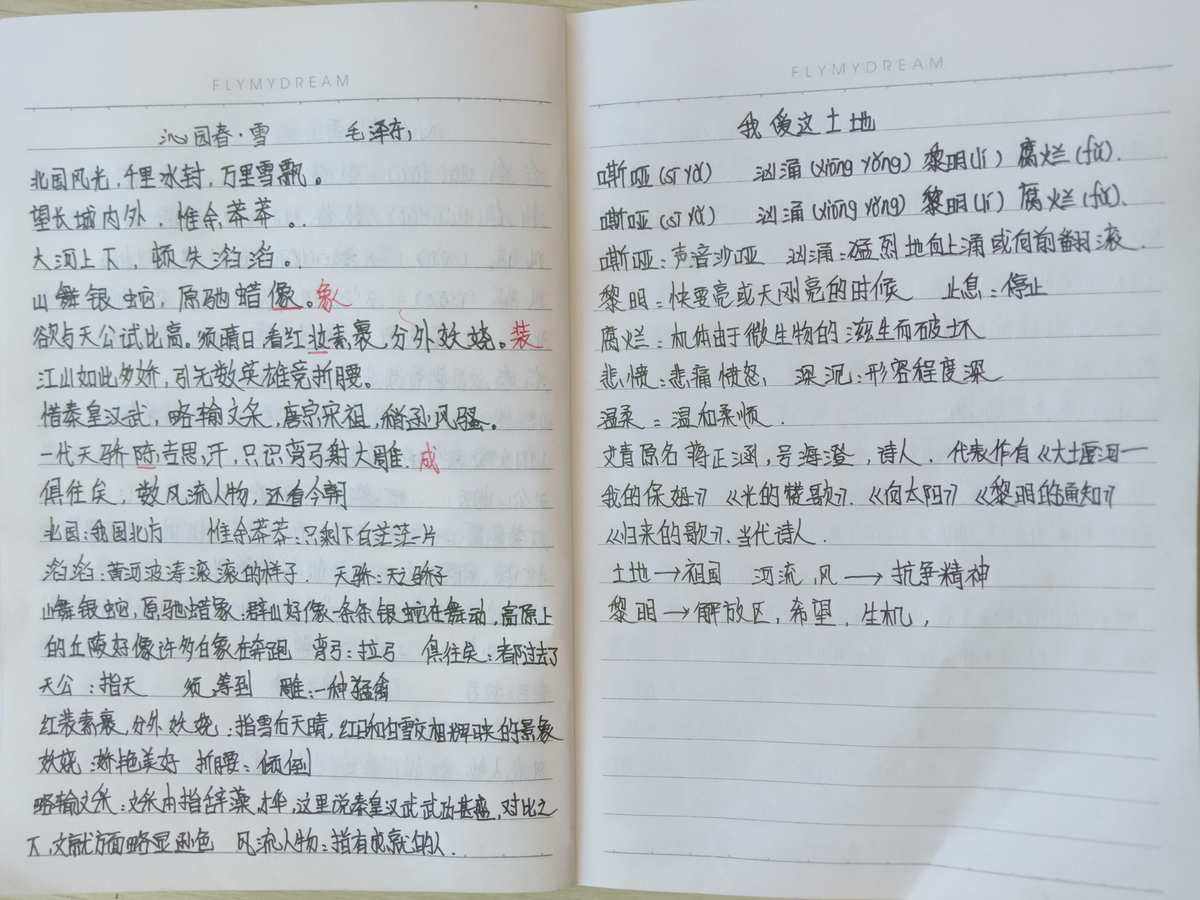 FLYMYDREAM
沁园春·雪 毛泽东
北国风光,千里冰封,万里雪飘。
望长城内外,惟余莽莽。
大河上下,顿失滔滔。
山舞银蛇,原驰蜡像。象
欲与天公试比高。须晴日,看红妆素裹,分外妖娆。装
江山如此多娇,引无数英雄竞折腰。
惜秦皇汉武,略输文采,唐宗宋祖,稍逊风骚。
一代天骄陈吉思汗,只识弯弓射大雕。成
俱往矣,数风流人物,还看今朝
北国:我国北方 惟余莽莽:只剩下白茫茫一片
滔滔:黄河波涛滚滚的样子. 天骄:天之骄子
山舞银蛇,原驰蜡象:群山好像一条条银蛇在舞动,高原上
的丘陵好像许多白象在奔跑 弯弓:拉弓 俱往矣:都过去了
天公:指天 须:等到 雕:一种猛禽
红装素裹,分外妖娆:指雪后天晴,红日和白雪交相辉映的景象
妖娆:娇艳美好 折腰:倾倒
略输文采:文采本指辞藻、才华,这里说秦皇汉武武功甚盛,对比之
下,文献方面略显逊色 风流人物:指有成就的人.
FLYMYDREAM
我爱这土地
嘶哑(sī yǎ) 汹涌(xiōng yǒng) 黎明(lí) 腐烂(fǔ).
嘶哑(sī yǎ) 汹涌(xiōng yǒng) 黎明(lí) 腐烂(fǔ).
嘶哑:声音沙哑 汹涌:猛烈地向上涌或向前翻滚.
黎明:快要亮或天刚亮的时候 止息:停止
腐烂:机体由于微生物的滋生而破坏
悲愤:悲痛愤怒 深沉:形容程度深
温柔:温和柔顺.
艾青原名蒋正涵,号海澄,诗人.代表作有《大堰河一
我的保姆》《光的赞歌》.《向太阳》《黎明的通知》
《归来的歌》.当代诗人.
土地→祖国 河流,风→抗争精神
黎明→解放区,希望,生机,